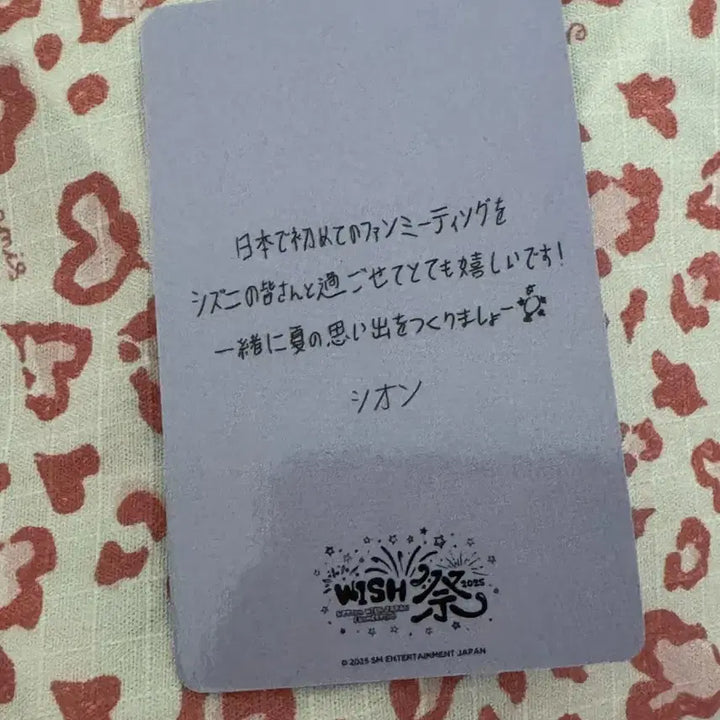 日本で初めてのファンミーティングを
シズニの皆さんと過ごせてとても嬉しいです!
一緒に夏の思い出をつくりましょー
シオン
WISH 祭 2025
© 2025 SM ENTERTAINMENT JAPAN